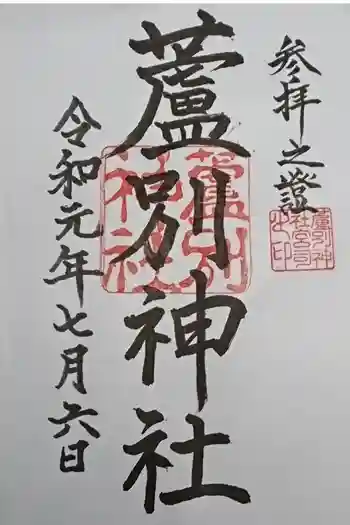 参拝之證
蘆別神社宮司之印
蘆別神社
蘆別神社
令和元年七月六日